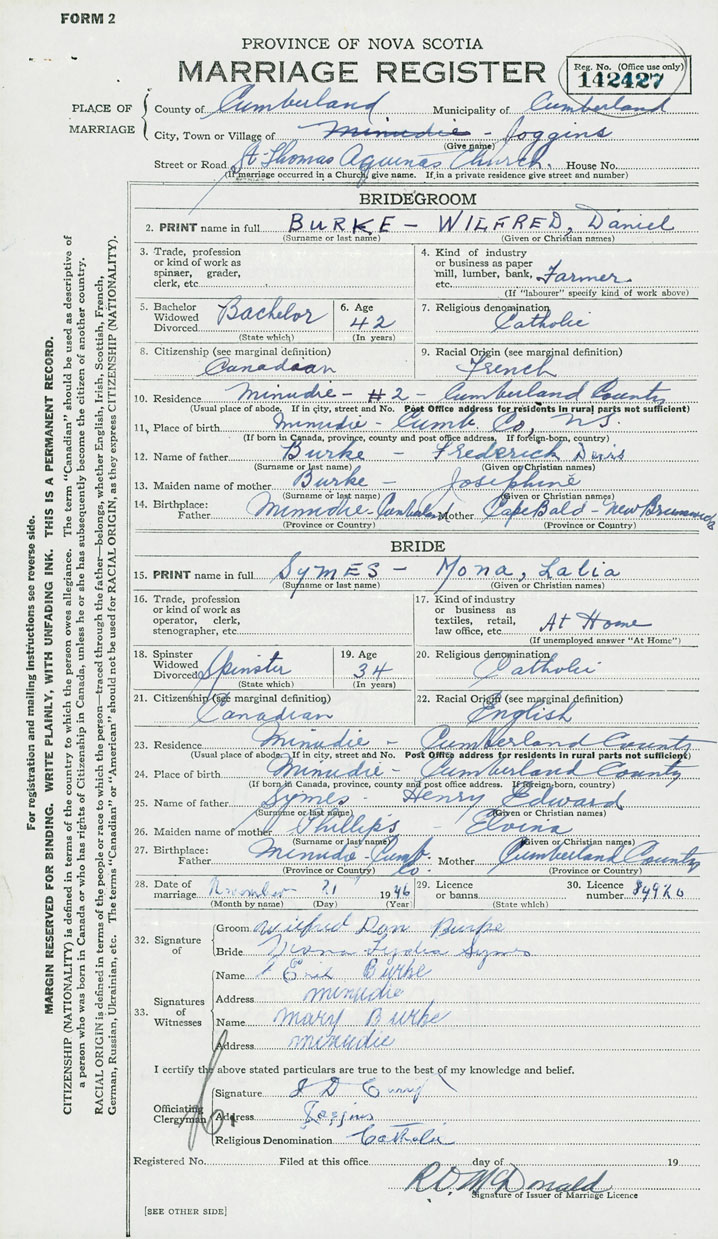 FORM 2
PROVINCE OF NOVA SCOTIA
MARRIAGE REGISTER
Reg. No. (Office use only)
142427
PLACE OF MARRIAGE
County of Cumberland Municipality of Cumberland
City, Town or Village of Minudie - Joggins
(Give name)
Street or Road St Thomas Aquinas Church. House No.
(If marriage occurred in a Church, give name. If in a private residence give street and number)
BRIDEGROOM
2. PRINT name in full BURKE - WILFRED, Daniel
(Surname or last name) (Given or Christian names)
3. Trade, profession or kind of work as spinner, grader, clerk, etc.
4. Kind of industry or business as paper mill, lumber, bank, etc. Farmer
(If "labourer" specify kind of work above)
5. Bachelor Widowed Divorced Bachelor
(State which)
6. Age 42
(In years)
7. Religious denomination Catholic
8. Citizenship (see marginal definition) Canadian
9. Racial Origin (see marginal definition) French
10. Residence Minudie - #2 - Cumberland County
(Usual place of abode. If in city, street and No. Post Office address for residents in rural parts not sufficient)
11. Place of birth Minudie - Cumb. Co, N.S.
(If born in Canada, province, county and post office address. If foreign-born, country)
12. Name of father Burke - Frederick
(Surname or last name) (Given or Christian names)
13. Maiden name of mother Burke - Josephine
(Surname or last name) (Given or Christian names)
14. Birthplace: Father Minudie - Cumberland Mother Cape Bald - New Brunswick
(Province or Country) (Province or Country)
BRIDE
15. PRINT name in full SYMES - Mona, Lalia
(Surname or last name) (Given or Christian names)
16. Trade, profession or kind of work as operator, clerk, stenographer, etc.
17. Kind of industry or business as textiles, retail, law office, etc. At Home
(If unemployed answer "At Home")
18. Spinster Widowed Divorced Spinster
(State which)
19. Age 34
(In years)
20. Religious denomination Catholic
21. Citizenship (see marginal definition) Canadian
22. Racial Origin (see marginal definition) English
23. Residence Minudie - Cumberland County
(Usual place of abode. If in city, street and No. Post Office address for residents in rural parts not sufficient)
24. Place of birth Minudie - Cumberland County
(If born in Canada, province, county and post office address. If foreign-born, country)
25. Name of father Symes - Henry Edward
(Surname or last name) (Given or Christian names)
26. Maiden name of mother Phillips - Elvina
(Surname or last name) (Given or Christian names)
27. Birthplace: Father Minudie - Cumb. Co. Mother Cumberland County
(Province or Country) (Province or Country)
28. Date of marriage 21 1946
(Month by name) (Day) (Year)
29. Licence or banns
(State which)
30. Licence number
32. Signature of
Groom Wilfred Dan Burke
Bride Symes
33. Signatures of Witnesses
Name Burke
Address Minudie
Name Mary Burke
Address minudie
I certify the above stated particulars are true to the best of my knowledge and belief.
Officiating Clergyman
Signature
Address Joggins
Religious Denomination Catholic
Registered No. Filed at this office day of 19
R.D. McDonald
Signature of Issuer of Marriage Licence
[SEE OTHER SIDE]
For registration and mailing instructions see reverse side.
MARGIN RESERVED FOR BINDING. WRITE PLAINLY, WITH UNFADING INK. THIS IS A PERMANENT RECORD.
CITIZENSHIP (NATIONALITY) is defined in terms of the country to which the person owes allegiance. The term "Canadian" should be used as descriptive of
a person who was born in Canada or who has rights of Citizenship in Canada, unless he or she has subsequently become the citizen of another country.
RACIAL ORIGIN is defined in terms of the people or race to which the person—traced through the father—belongs, whether English, Irish, Scottish, French,
German, Russian, Ukrainian, etc. The terms "Canadian" or "American" should not be used for RACIAL ORIGIN, as they express CITIZENSHIP (NATIONALITY).